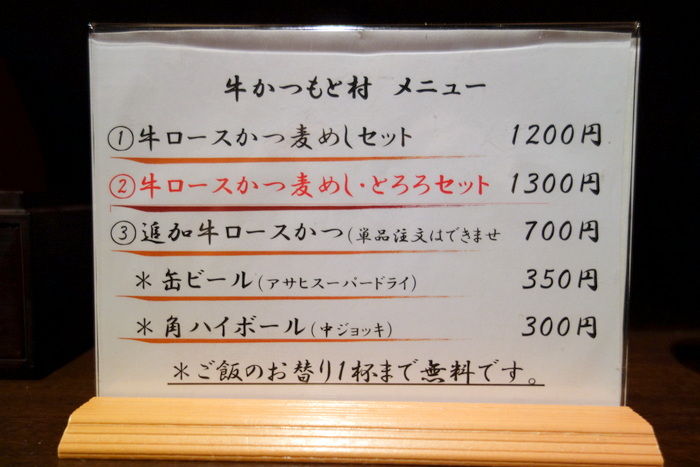 牛かつもと村 メニュー
①牛ロースかつ麦めしセット 1200円
②牛ロースかつ麦めし・とろろセット 1300円
③追加牛ロースかつ(単品注文はできませ 700円
＊缶ビール(アサヒスーパードライ) 350円
＊角ハイボール(中ジョッキ) 300円
＊ご飯のお替り1杯まで無料です。